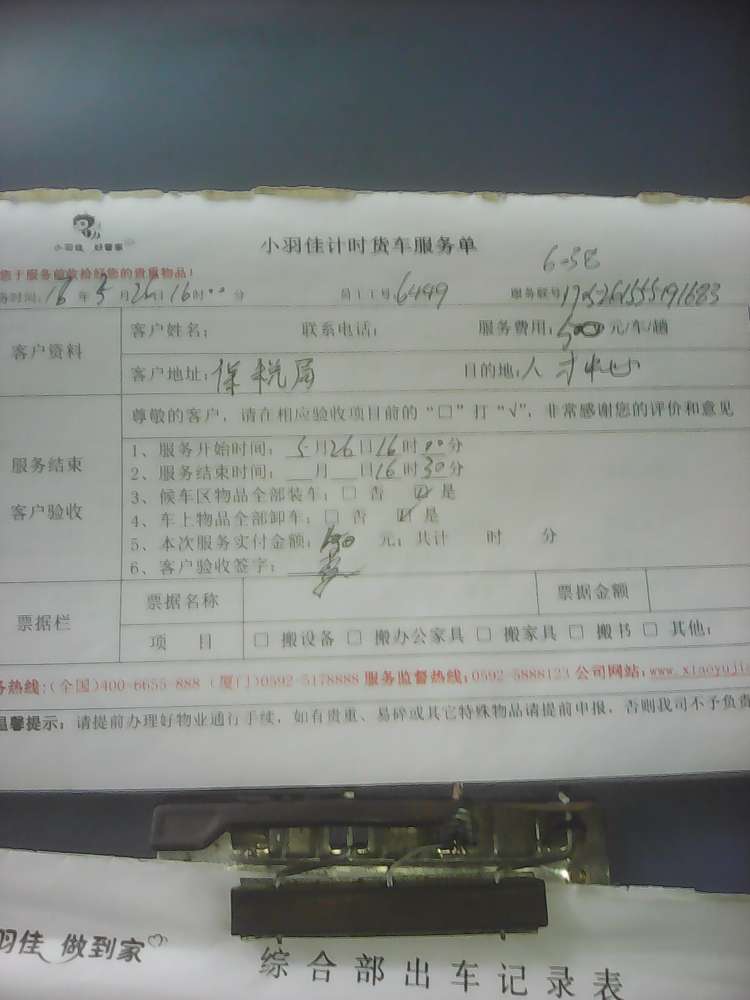 小羽佳 好管家
小羽佳计时货车服务单
6-38
您于服务前收拾好您的贵重物品!
务时间: 16 年 5 月 26 日 16 时 00 分 员工工号 6449 服务联号
客户资料
客户姓名: 联系电话: 服务费用: 元/车/趟
客户地址: 保税局 目的地: 人才中心
尊敬的客户,请在相应验收项目前的“□”打“√”,非常感谢您的评价和意见
服务结束
客户验收
1、服务开始时间: 5 月 26 日 16 时 00 分
2、服务结束时间: 月 日 16 时 30 分
3、候车区物品全部装车: □ 否 ☑ 是
4、车上物品全部卸车: □ 否 ☑ 是
5、本次服务实付金额: 元; 共计 时 分
6、客户验收签字:
票据栏
票据名称 票据金额
项 目 □ 搬设备 □ 搬办公家具 □ 搬家具 □ 搬书 □ 其他:
务热线:(全国)400-6655-888 (厦门)0592-5178888 服务监督热线:0592-5888123 公司网站:www.xiaoyujia
温馨提示: 请提前办理好物业通行手续,如有贵重、易碎或其它特殊物品请提前申报,否则我司不予负责
羽佳 做到家
综合部出车记录表